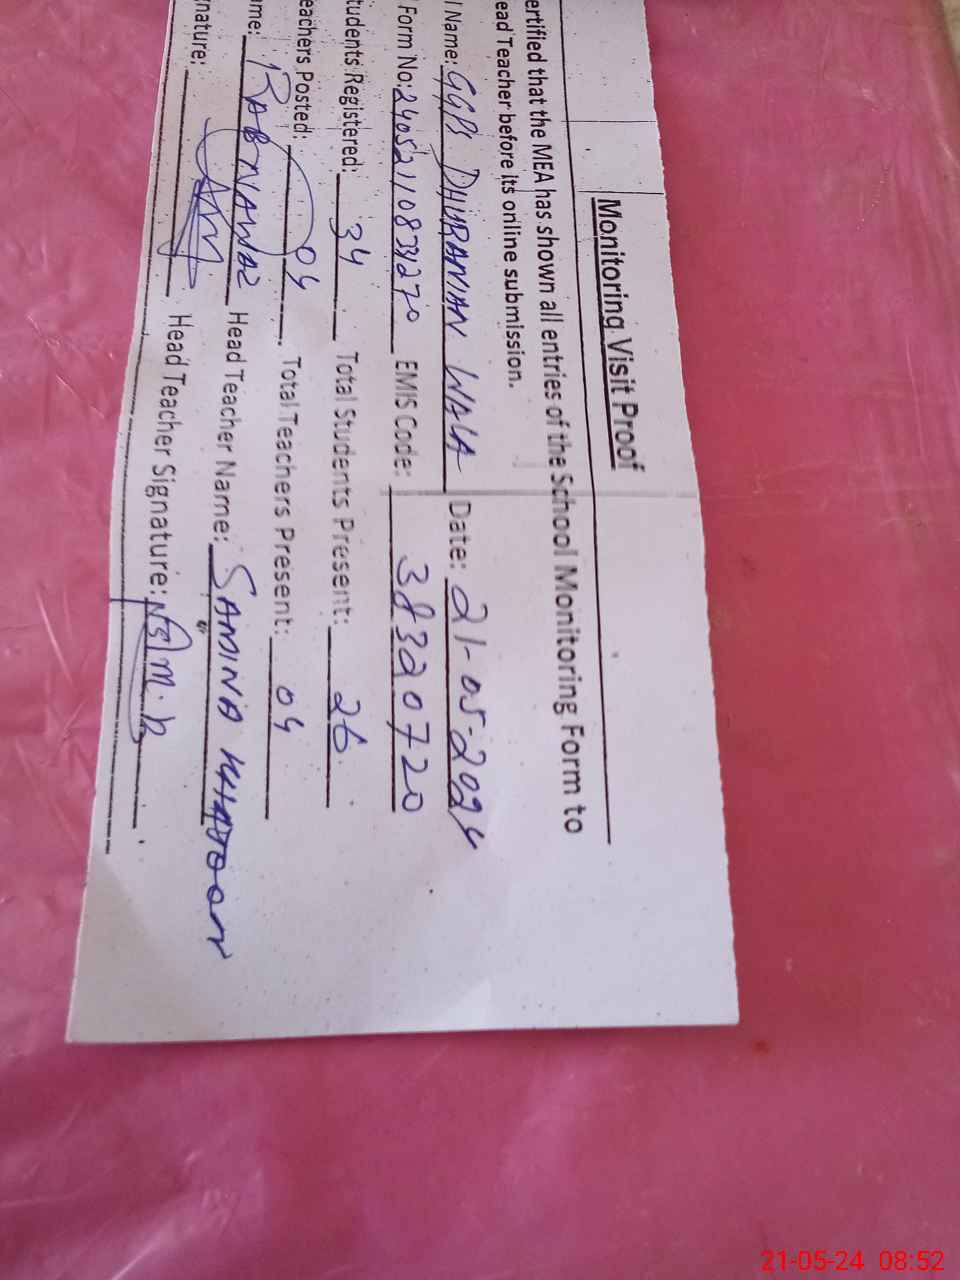 Monitoring Visit Proof
ertified that the MEA has shown all entries of the School Monitoring Form to
ead Teacher before its online submission.
l Name: GGPS DHURANAN WALA Date: 21-05-2024
Form No: EMIS Code: 38320720
tudents Registered: 34 Total Students Present: 26
eachers Posted: 04 Total Teachers Present: 04
ame: RAB NAWAZ Head Teacher Name: SAMINA KHATOON
nature: Head Teacher Signature:
21-05-24 08:52